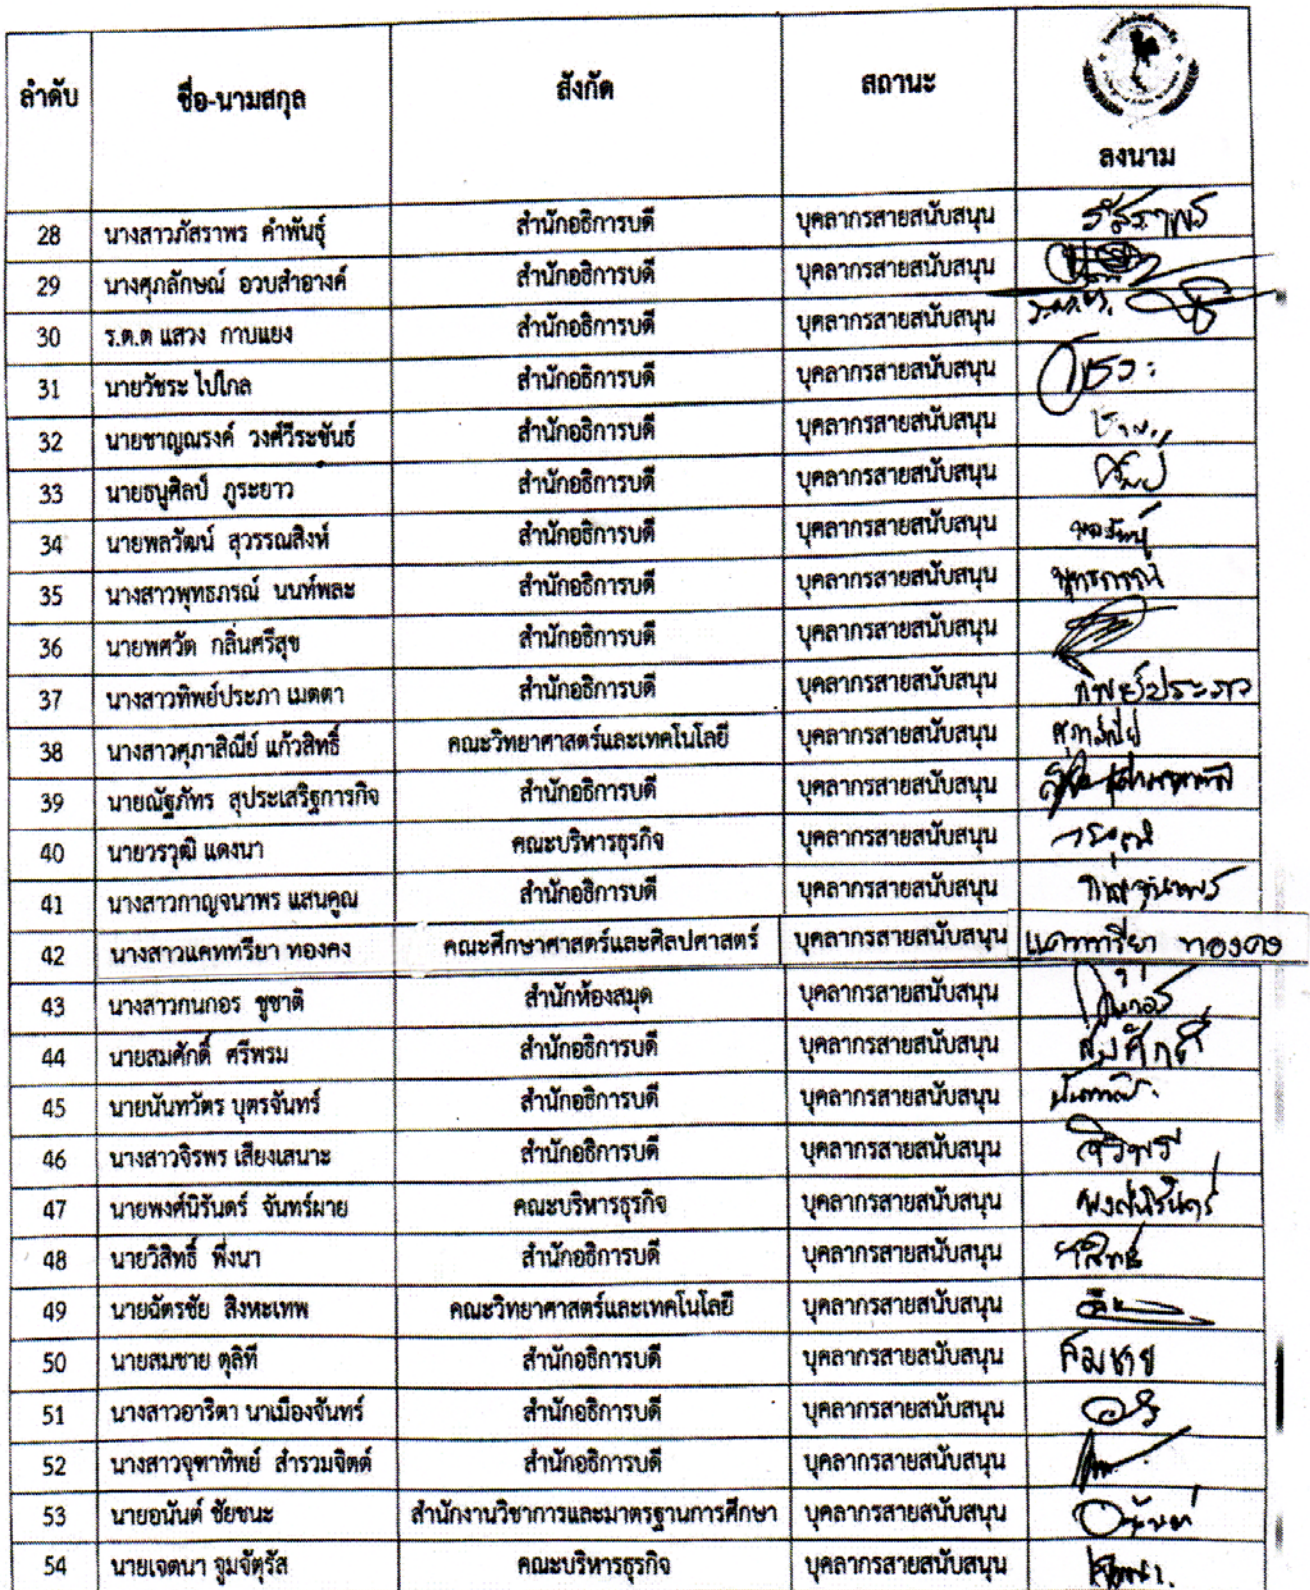 ลำดับ ชื่อ-นามสกุล สังกัด สถานะ ลงนาม
28 นางสาวภัสราพร คำพันธุ์ สำนักอธิการบดี บุคลากรสายสนับสนุน ภัสราพร
29 นางศุภลักษณ์ อวบสำอางค์ สำนักอธิการบดี บุคลากรสายสนับสนุน
30 ร.ต.ต แสวง กาบแยง สำนักอธิการบดี บุคลากรสายสนับสนุน
31 นายวัชระ ไปไกล สำนักอธิการบดี บุคลากรสายสนับสนุน
32 นายชาญณรงค์ วงศ์วีระขันธ์ สำนักอธิการบดี บุคลากรสายสนับสนุน
33 นายธนูศิลป์ ภูระยาว สำนักอธิการบดี บุคลากรสายสนับสนุน
34 นายพลวัฒน์ สุวรรณสิงห์ สำนักอธิการบดี บุคลากรสายสนับสนุน
35 นางสาวพุทธภรณ์ นนท์พละ สำนักอธิการบดี บุคลากรสายสนับสนุน พุทธภรณ์
36 นายพศวัต กลิ่นศรีสุข สำนักอธิการบดี บุคลากรสายสนับสนุน
37 นางสาวทิพย์ประภา เมตตา สำนักอธิการบดี บุคลากรสายสนับสนุน ทิพย์ประภา
38 นางสาวศุภาสิณีย์ แก้วสิทธิ์ คณะวิทยาศาสตร์และเทคโนโลยี บุคลากรสายสนับสนุน ศุภาสิณีย์
39 นายณัฐภัทร สุประเสริฐการกิจ สำนักอธิการบดี บุคลากรสายสนับสนุน
40 นายวรวุฒิ แดงนา คณะบริหารธุรกิจ บุคลากรสายสนับสนุน วรวุฒิ
41 นางสาวกาญจนาพร แสนคูณ สำนักอธิการบดี บุคลากรสายสนับสนุน กาญจนาพร
42 นางสาวแคททรียา ทองคง คณะศึกษาศาสตร์และศิลปศาสตร์ บุคลากรสายสนับสนุน แคททรียา ทองคง
43 นางสาวกนกอร ชูชาติ สำนักห้องสมุด บุคลากรสายสนับสนุน
44 นายสมศักดิ์ ศรีพรม สำนักอธิการบดี บุคลากรสายสนับสนุน สมศักดิ์
45 นายนันทวัตร บุตรจันทร์ สำนักอธิการบดี บุคลากรสายสนับสนุน
46 นางสาวจิรพร เสียงเสนาะ สำนักอธิการบดี บุคลากรสายสนับสนุน จิรพร
47 นายพงศ์นิรันดร์ จันทร์ผาย คณะบริหารธุรกิจ บุคลากรสายสนับสนุน พงศ์นิรันดร์
48 นายวิสิทธิ์ พึ่งนา สำนักอธิการบดี บุคลากรสายสนับสนุน วิสิทธิ์
49 นายฉัตรชัย สิงหะเทพ คณะวิทยาศาสตร์และเทคโนโลยี บุคลากรสายสนับสนุน
50 นายสมชาย ดุลิที สำนักอธิการบดี บุคลากรสายสนับสนุน สมชาย
51 นางสาวอาริตา นาเมืองจันทร์ สำนักอธิการบดี บุคลากรสายสนับสนุน
52 นางสาวจุฑาทิพย์ สำรวมจิตต์ สำนักอธิการบดี บุคลากรสายสนับสนุน
53 นายอนันต์ ชัยชนะ สำนักงานวิชาการและมาตรฐานการศึกษา บุคลากรสายสนับสนุน อนันต์
54 นายเจตนา จูมจัตุรัส คณะบริหารธุรกิจ บุคลากรสายสนับสนุน เจตนา.